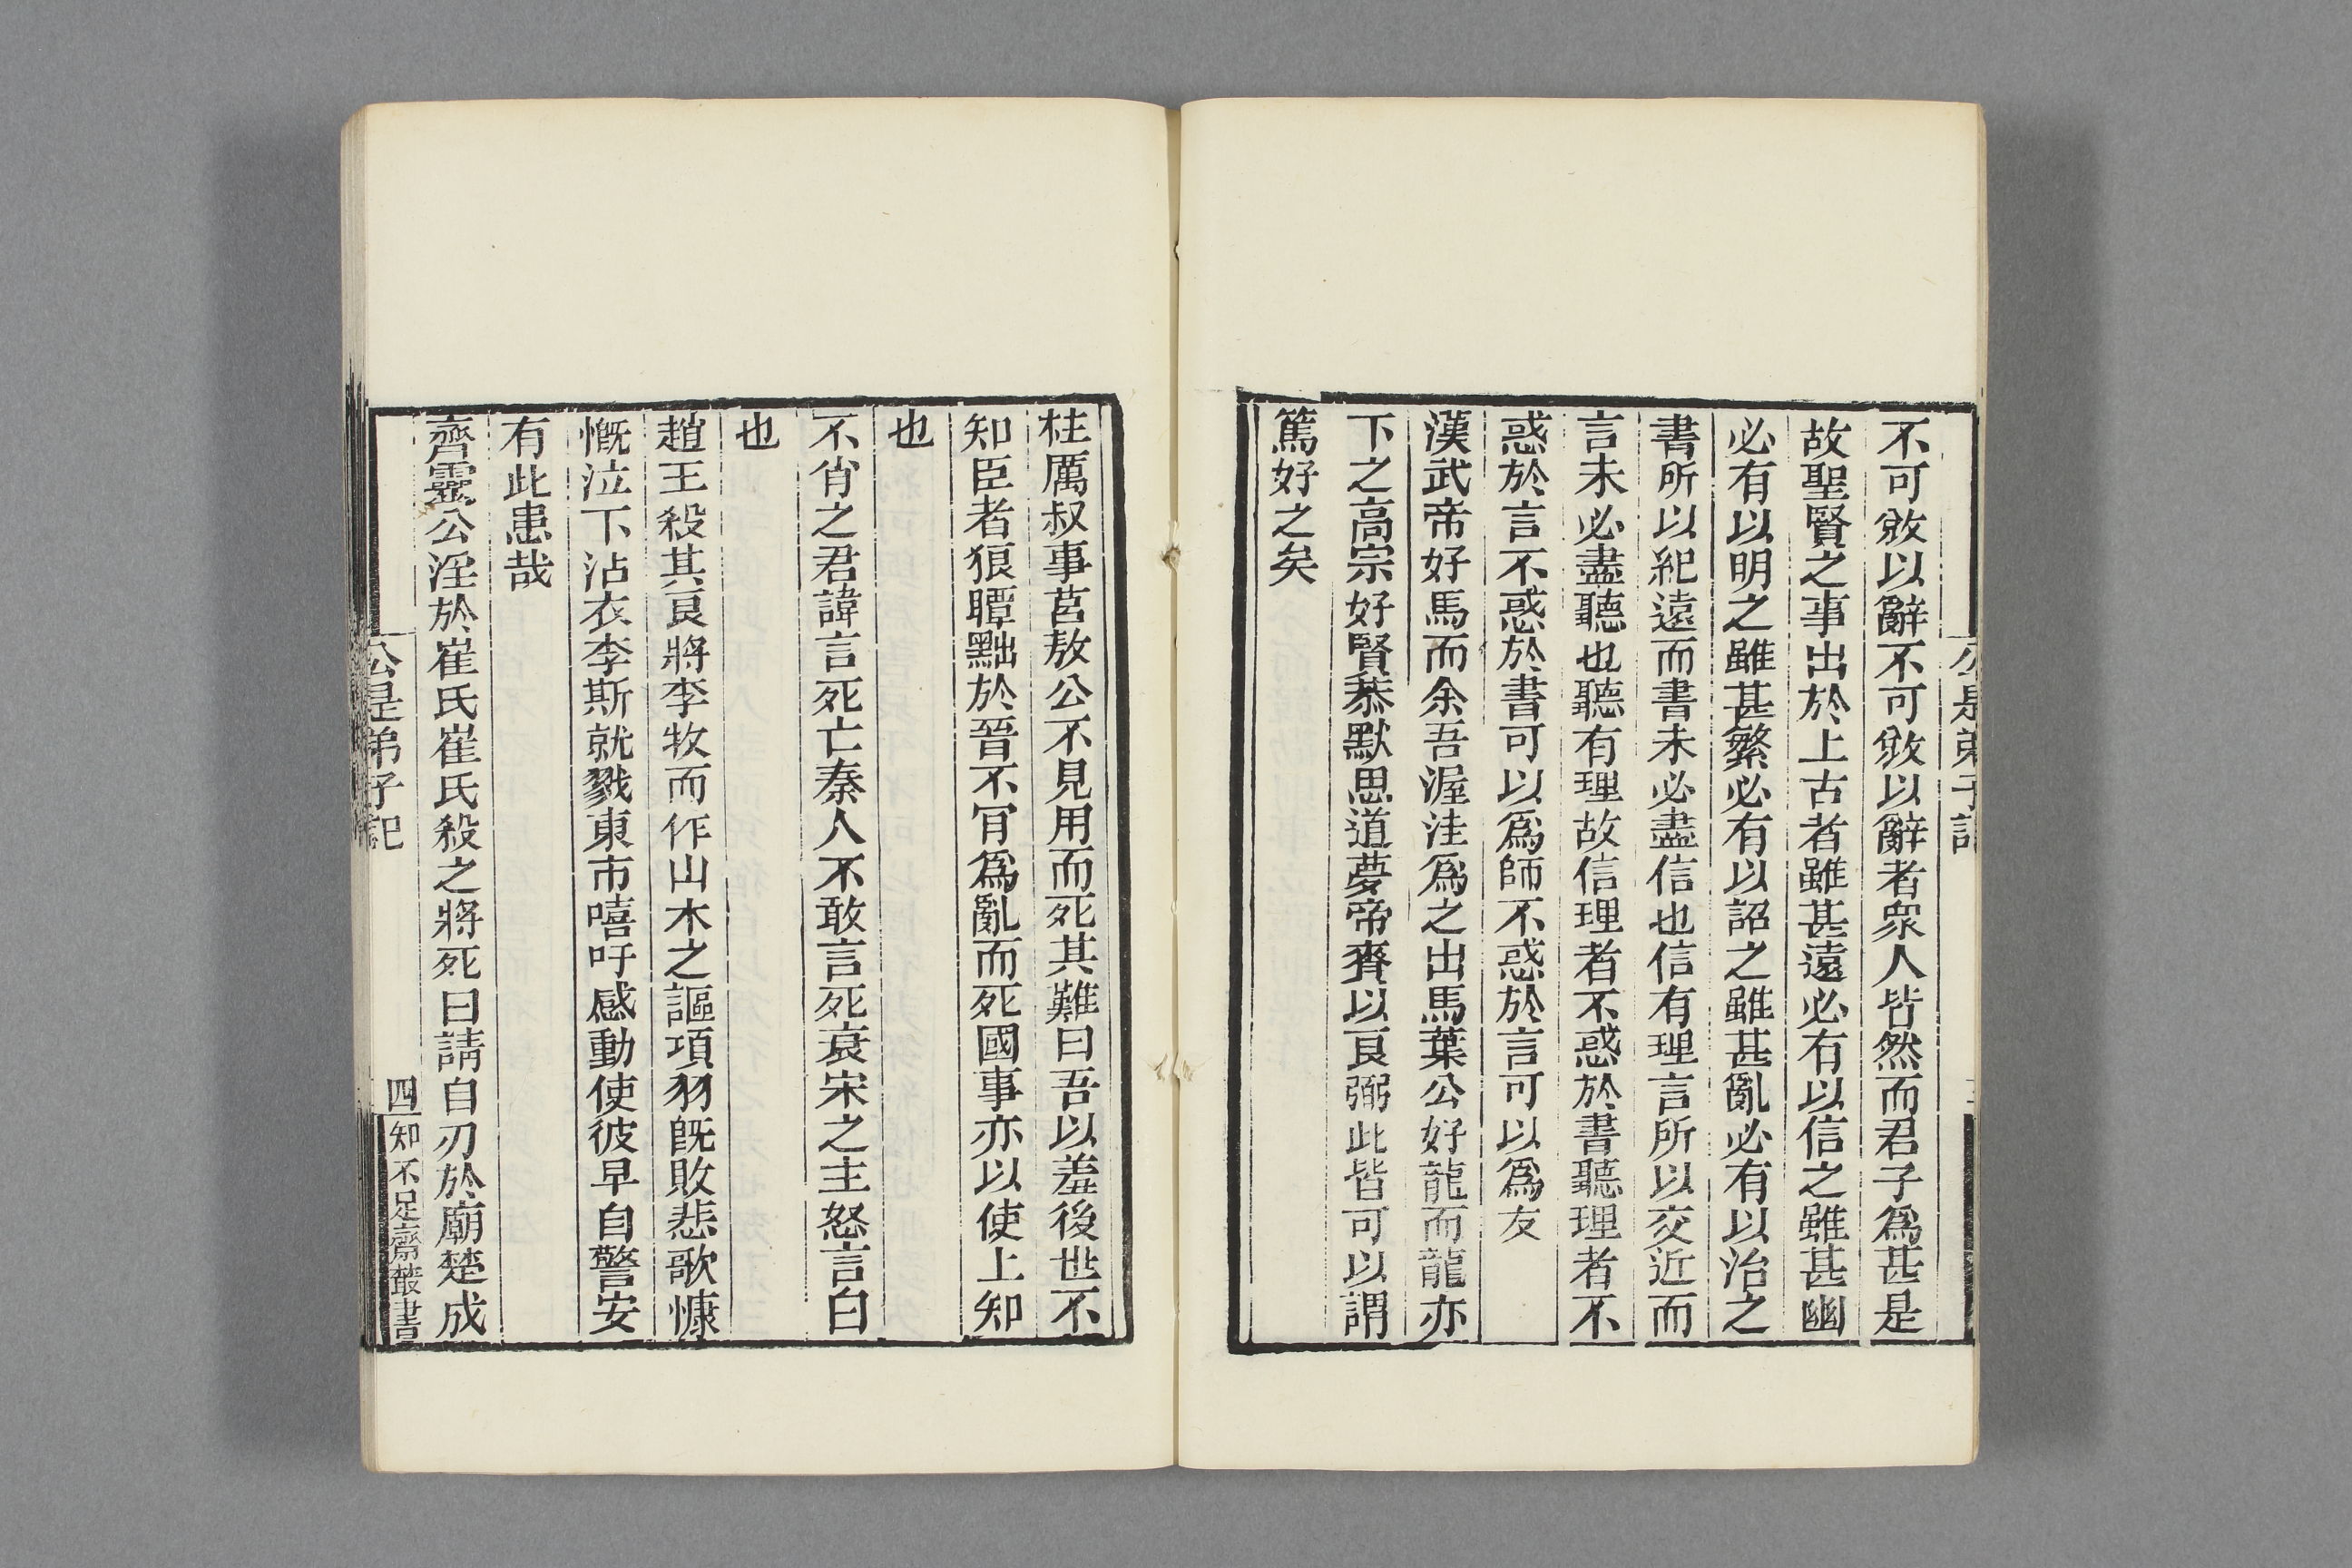 公是弟子記
不可敓以辭不可敓以辭者衆人皆然而君子爲甚是
故聖賢之事出於上古者雖甚遠必有以信之雖甚幽
必有以明之雖甚繁必有以詔之雖甚亂必有以治之
書所以紀遠而書未必盡信也信有理言所以交近而
言未必盡聽也聽有理故信理者不惑於書聽理者不
惑於言不惑於書可以爲師不惑於言可以爲友
漢武帝好馬而余吾渥洼爲之出馬葉公好龍而龍亦
下之高宗好賢恭默思道夢帝賚以良弼此皆可以謂
篤好之矣
柱厲叔事莒敖公不見用而死其難曰吾以羞後世不
知臣者狼瞫黜於晉不肎爲亂而死國事亦以使上知
也
不肖之君諱言死亡秦人不敢言死衰宋之主怒言白
也
趙王殺其良將李牧而作山木之謳項羽旣敗悲歌慷
慨泣下沾衣李斯就戮東市嘻吁感動使彼早自警安
有此患哉
齊靈公淫於崔氏崔氏殺之將死曰請自刃於廟楚成
公是弟子記
四
知不足齋叢書